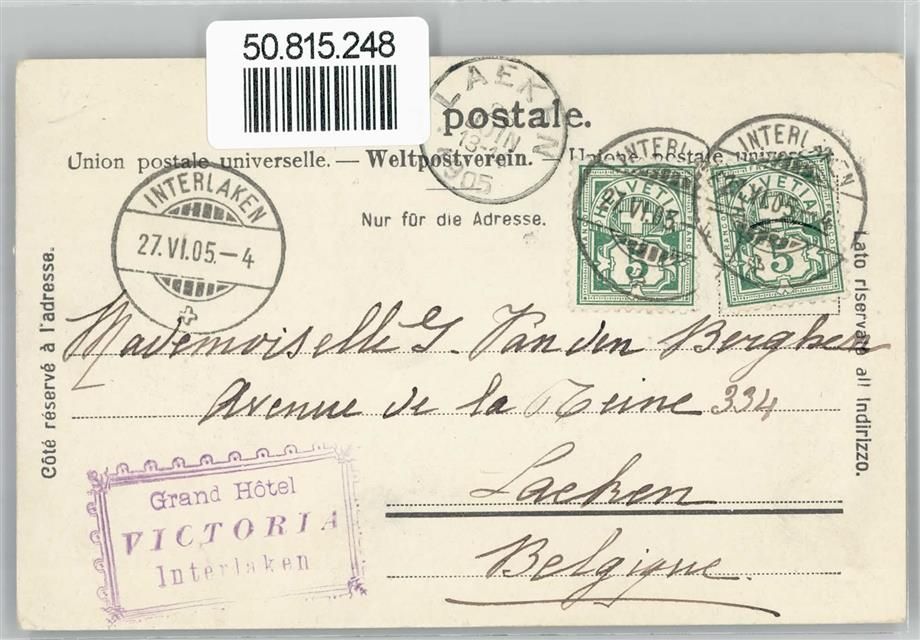 50.815.248
LAEKEN
JUIN
13-
1905
postale.
Union postale universelle. — Weltpostverein. — Unione postale universale
INTERLAKEN
27.VI.05.–4
Nur für die Adresse.
INTERLAKEN
VI.05.
HELVETIA
FRANCO
5
INTERLAKEN
VI.05.
HELVETIA
5
Côté réservé à l'adresse.
Lato riservato all' Indirizzo.
Mademoiselle G. Van den Berghen
Avenue de la Reine 334
Laeken
Belgique.
Grand Hôtel
VICTORIA
Interlaken